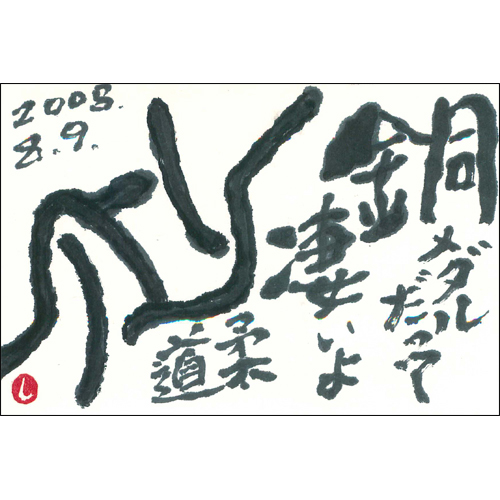 2008.
8.9.
銅
メダル
だって
凄いよ
柔
道
し